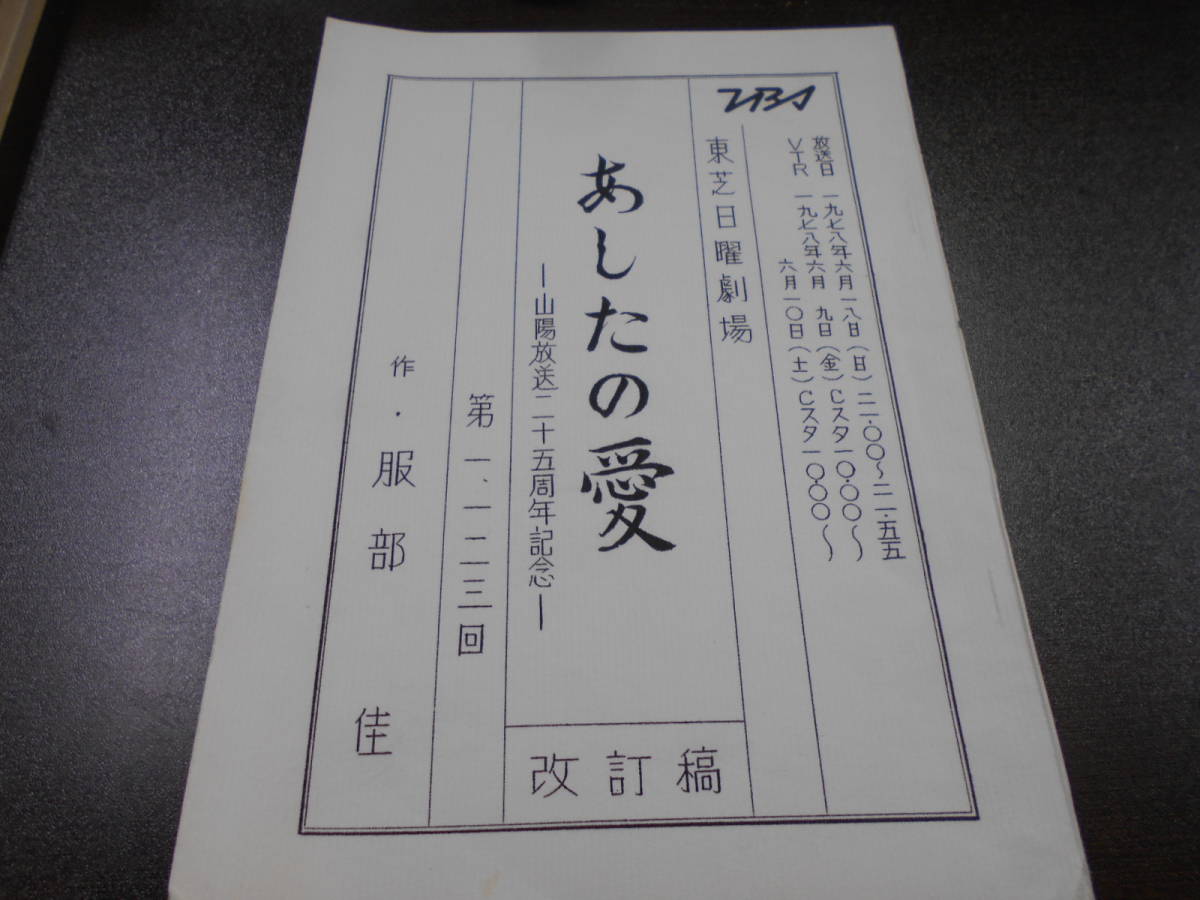 放送日 一九七八年六月一八日(日)二一・〇〇〜二一・五五
VTR 一九七八年六月 九日(金)Cスタ一〇・〇〇〜
六月一〇日(土)Cスタ一〇・〇〇〜
TBS
東芝日曜劇場
あしたの愛
―山陽放送二十五周年記念―
改訂稿
第一、一二三回
作・服部 佳